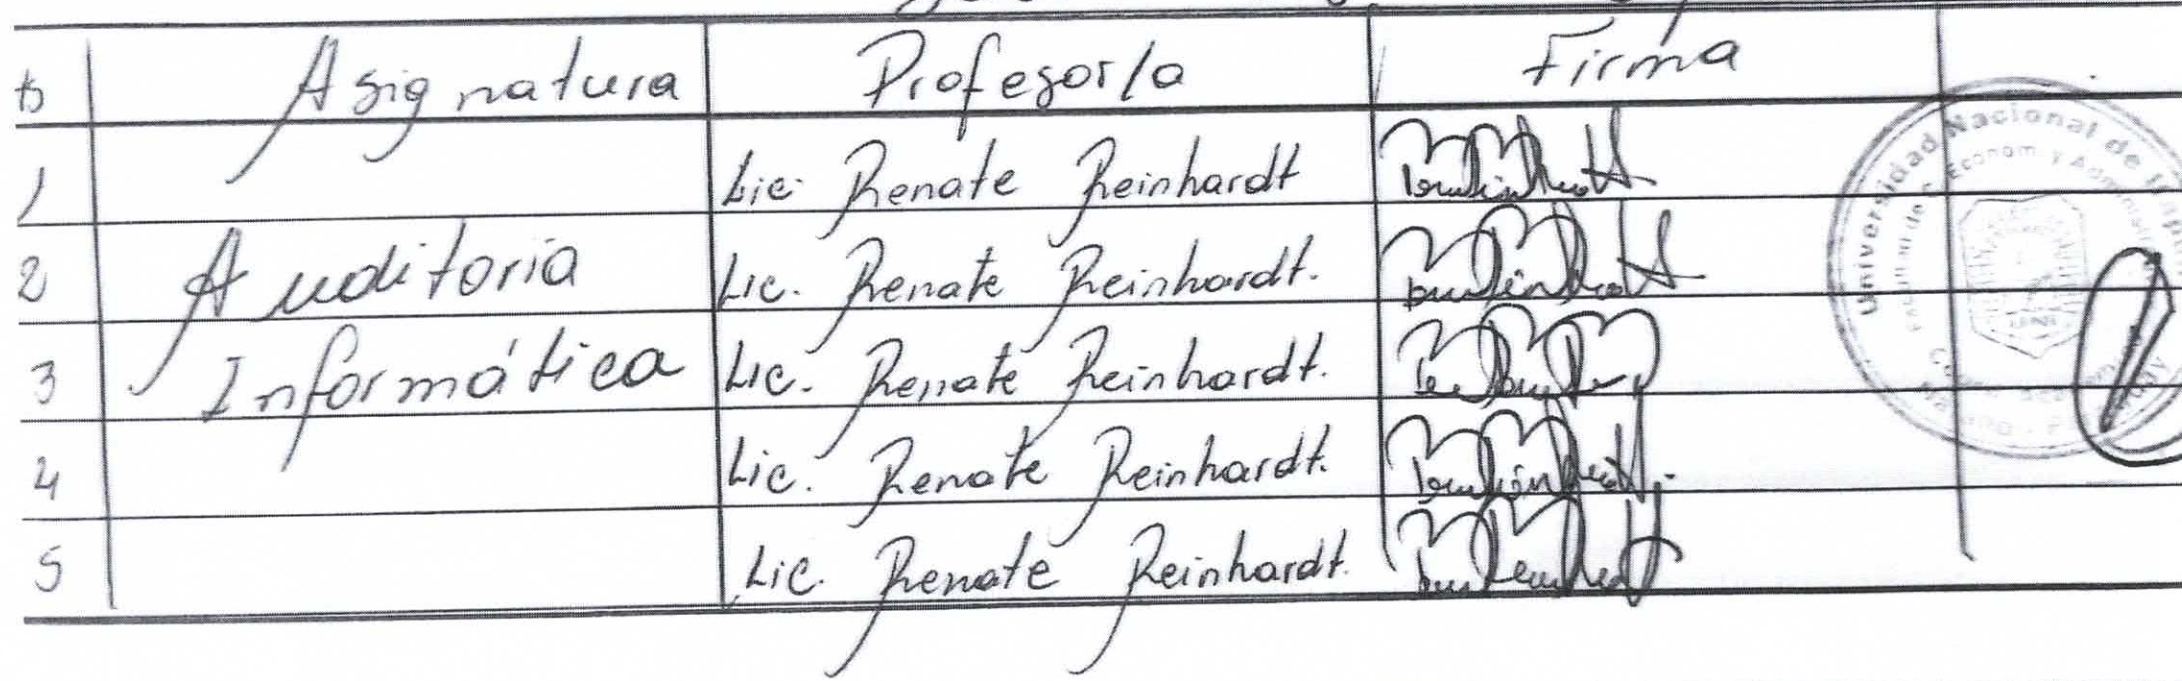 Asignatura Profesor/a Firma
1 Lic. Renate Reinhardt
2 Auditoria Lic. Renate Reinhardt.
3 Informática Lic. Renate Reinhardt.
4 Lic. Renate Reinhardt.
5 Lic. Renate Reinhardt.
Universidad Nacional de